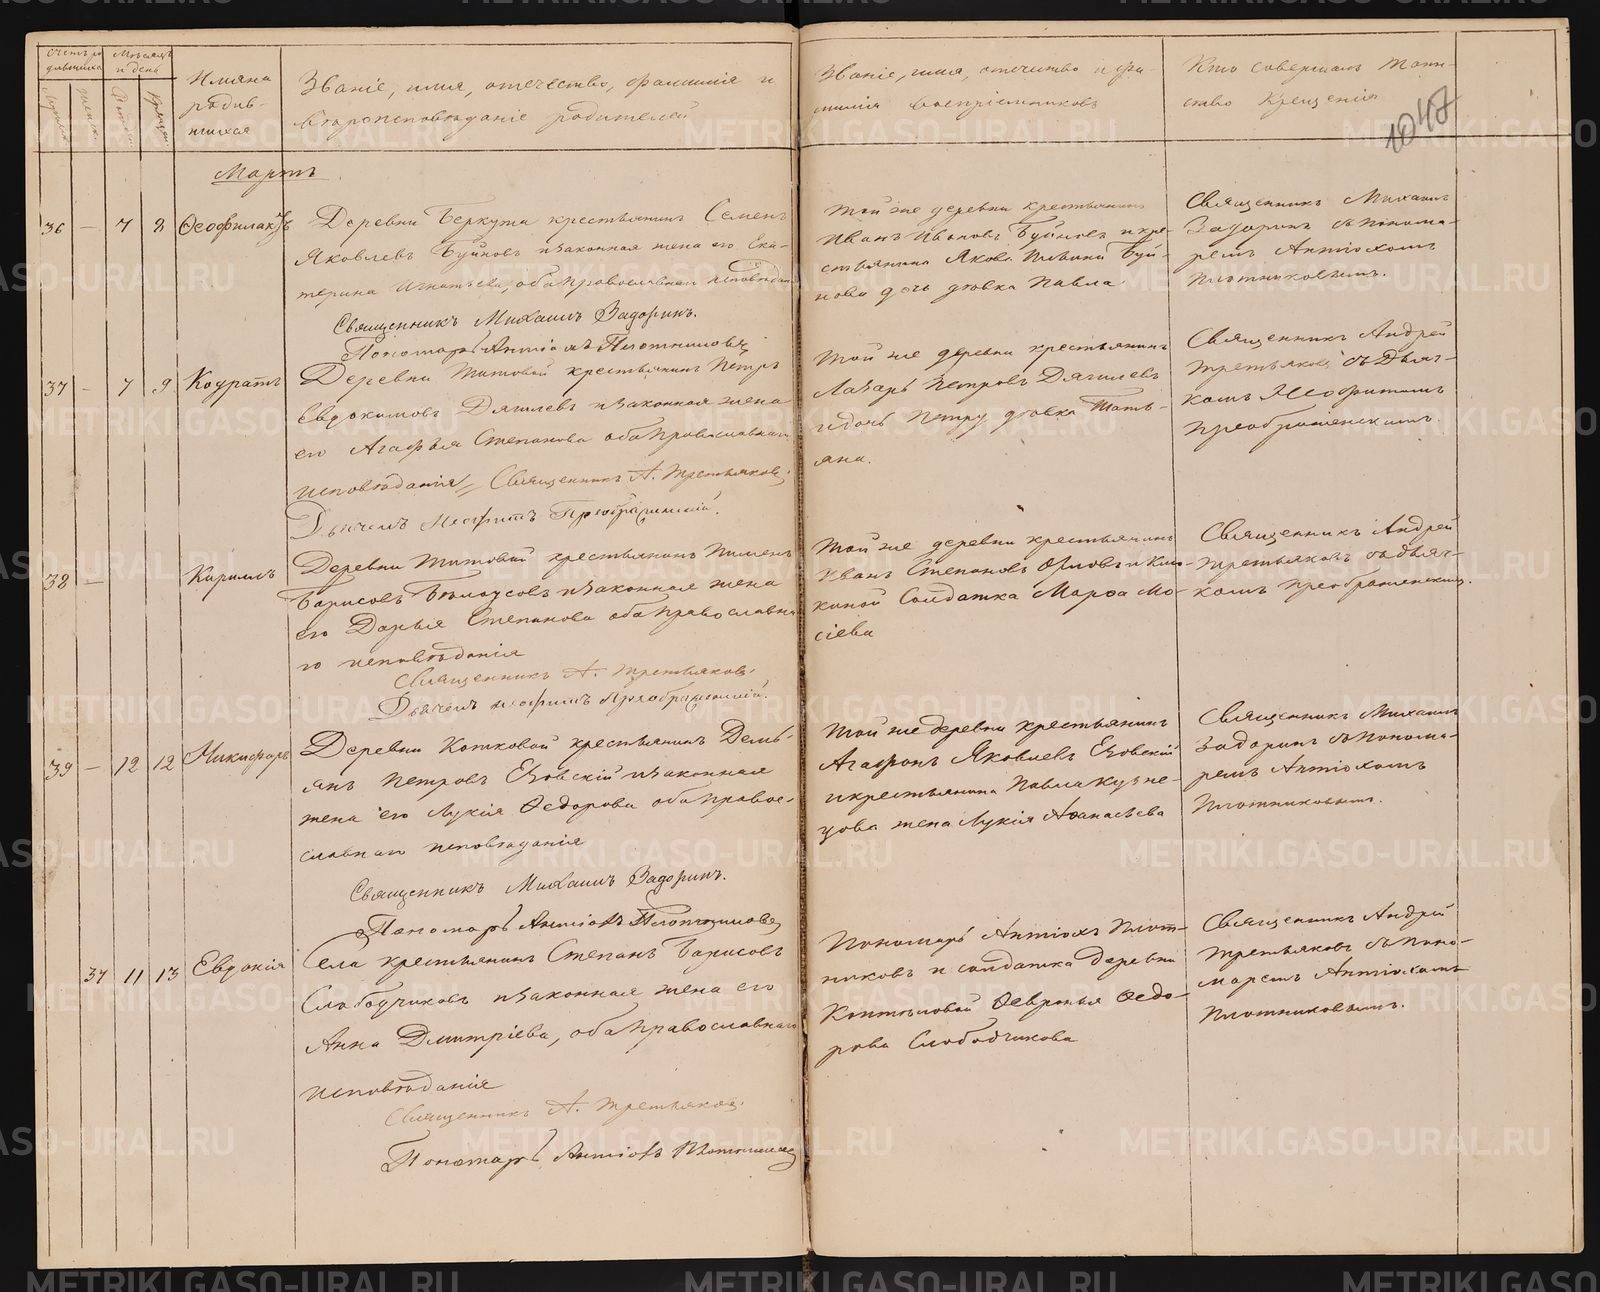 Счетъ ро
дившихся
Мѣсяцъ
и день
Имяна
родив-
шихся
Званіе, имя, отечество, фамилія и
вѣроисповѣданіе родителей
Званіе, имя, отечество и фа-
милія воспріемниковъ
Кто совершалъ таин-
ство Крещенія
1047
Мартъ
36 — 7 8 Ѳеофилактъ
Деревни Беркута крестьянинъ Семенъ
Яковлевъ Буйновъ и законная жена его Ека-
терина Игнатьева, оба православнаго исповѣдан
Священникъ Михаилъ Задоринъ.
Пономарь Антіохъ Плотниковъ
Той же деревни крестьянинъ
Иванъ Ивановъ Буйновъ и кре-
стьянина Якова Буй-
нова дочь дѣвка Павла
Священникъ Михаилъ
Задоринъ съ понома-
ремъ Антіохомъ
Плотниковымъ.
37 — 7 9 Кодратъ
Деревни Титовой крестьянинъ Петръ
Евдокимовъ Дягилевъ и законная жена
его Агафья Степанова оба православнаго
исповѣданія Священникъ А. Третьяковъ
Дьячекъ Неофитъ Преображенскій.
Той же деревни крестьянинъ
Лазарь Петровъ Дягилевъ
и дочь Петру дѣвка Тать-
яна.
Священникъ Андрей
Третьяковъ съ Дьяч-
комъ Неофитомъ
Преображенскимъ.
38 — Кириллъ
Деревни Титовой крестьянинъ Пименъ
Барисовъ Бѣлоусовъ и законная жена
его Дарья Степанова оба православна
го исповѣданія
Священникъ А. Третьяковъ.
Дьячекъ Неофитъ Преображенскій.
Той же деревни крестьянинъ
Иванъ Степановъ Орловъ и
Солдатка Марѳа Мо-
сіева
Священникъ Андрей
Третьяковъ съ дьяч-
комъ Преображенскимъ.
39 — 12 12 Никифоръ
Деревни Котковой крестьянинъ Демь-
янъ Петровъ Езовскій и законная
жена его Лукія Ѳедорова оба право-
славнаго исповѣданія
Священникъ Михаилъ Задоринъ.
Пономарь Антіохъ Плотниковъ
Той же деревни крестьянинъ
Агафонъ Яковлевъ Езовскій
и крестьянина Павла Кузне-
цова жена Лукія Аѳанасьева
Священникъ Михаилъ
Задоринъ съ понома-
ремъ Антіохомъ
Плотниковымъ.
37 11 13 Евдокія
Села крестьянинъ Степанъ Барисовъ
Слободчиковъ и законная жена его
Анна Дмитріева, оба православнаго
исповѣданія
Священникъ А. Третьяковъ.
Пономарь Антіохъ Плотниковъ
Пономарь Антіохъ Плот-
никовъ и солдатка деревни
Коптяловой Ѳевронья Ѳедо-
рова Слободчикова
Священникъ Андрей
Третьяковъ съ поно-
маремъ Антіохомъ
Плотниковымъ.